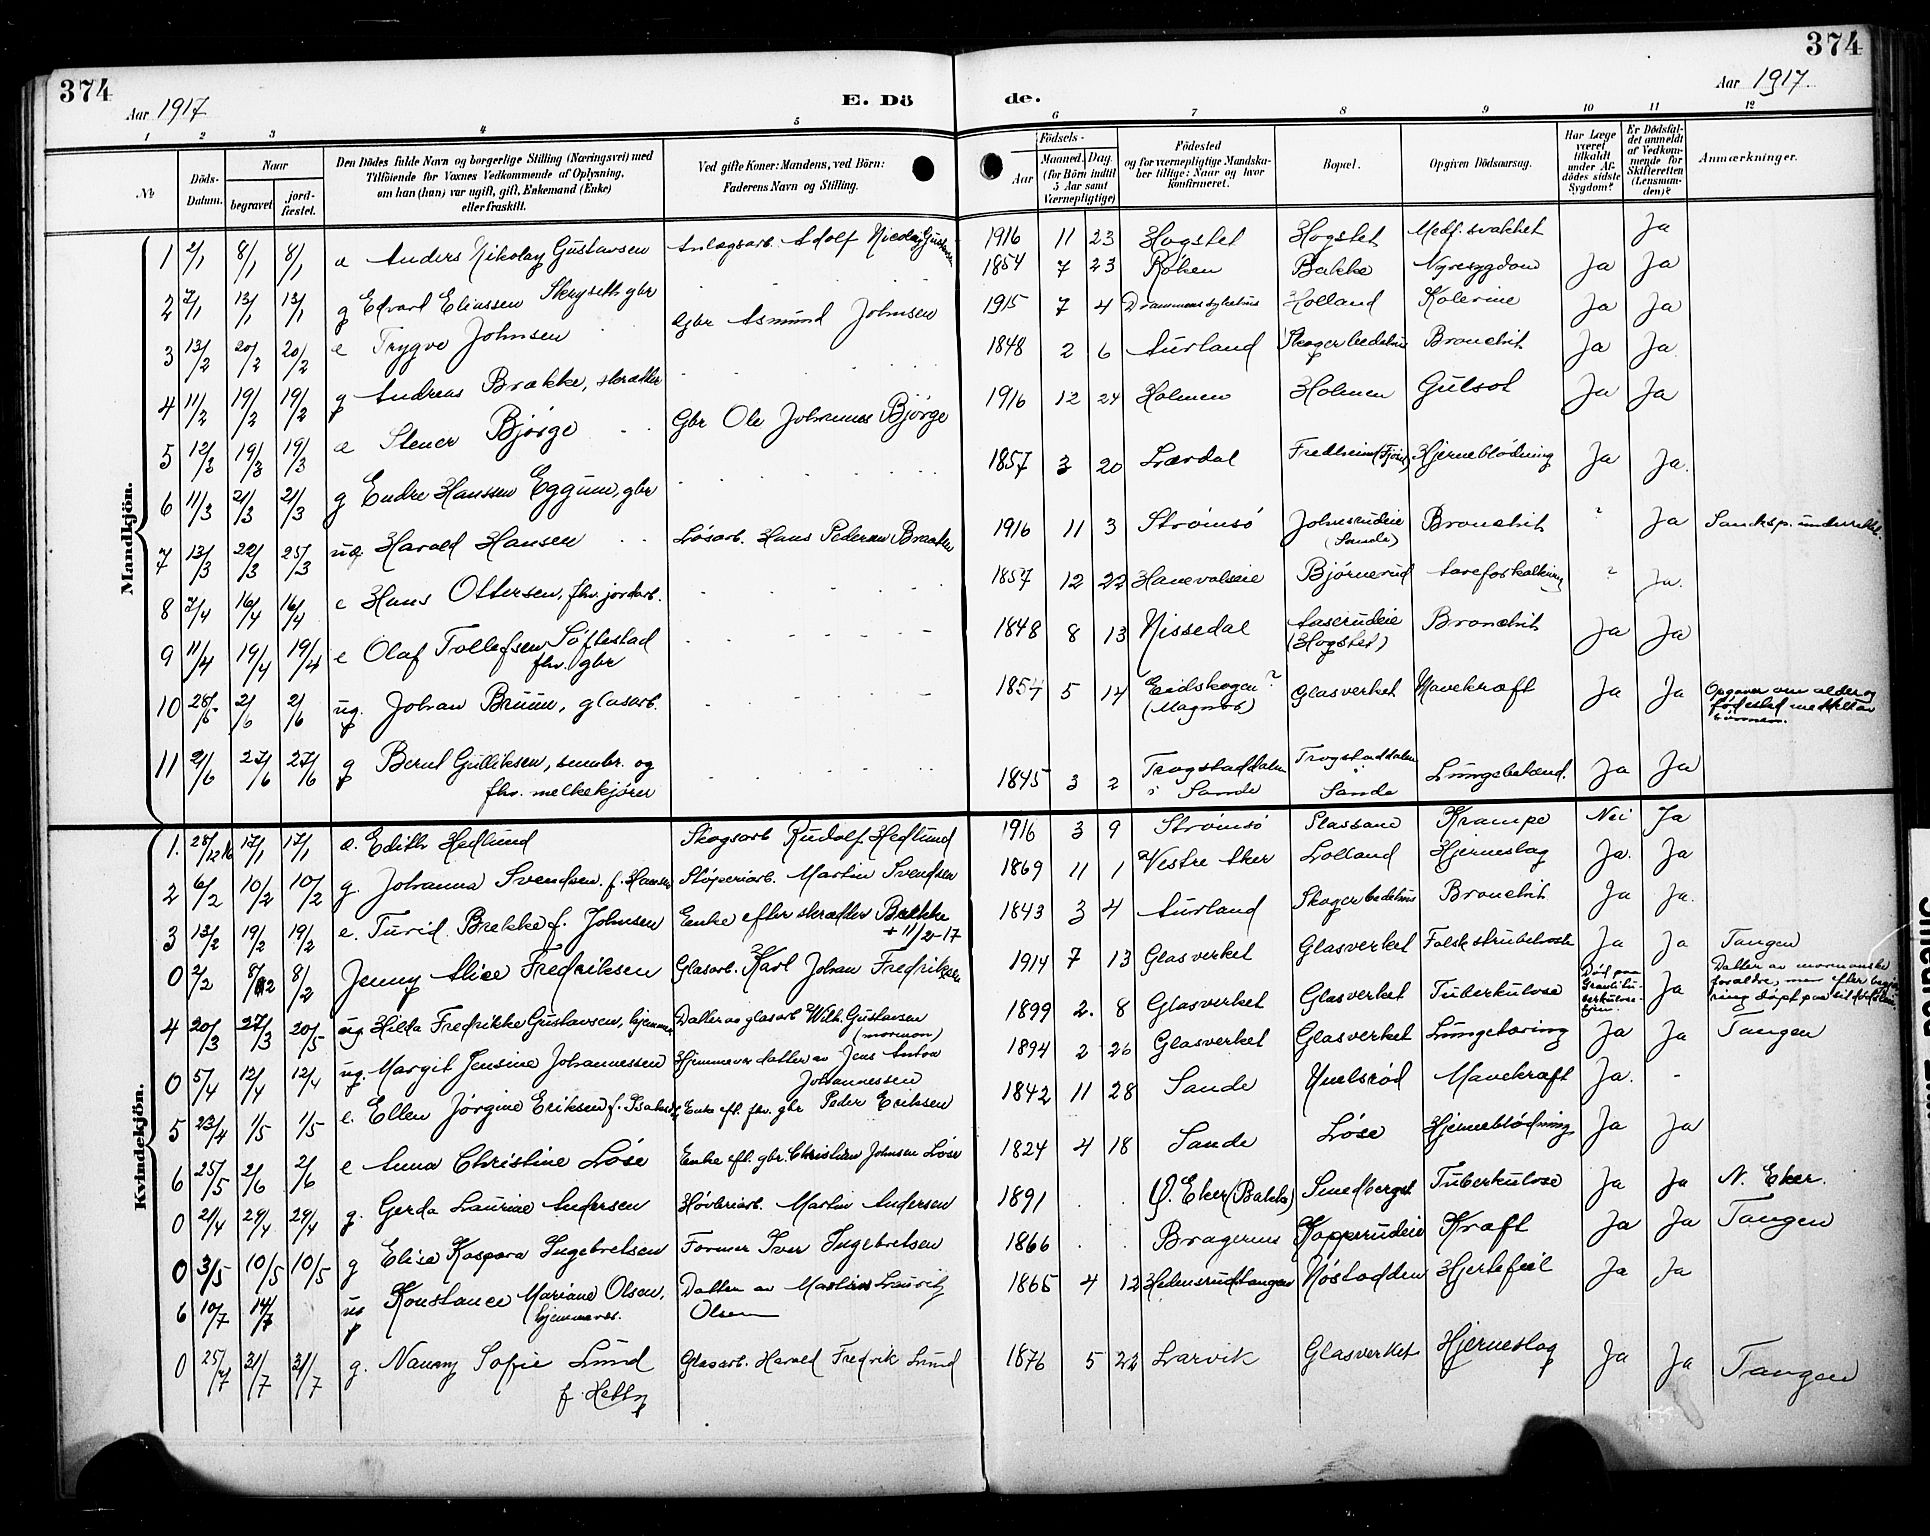 374
374
Aar 1917
E. Dö de.
Aar 1917.
1 2 3 4 5 6 7 8 9 10 11 12
No
Döds-Datum.
Naar
begravet
jord-fæstet.
Den Dödes fulde Navn og borgerlige Stilling (Næringsvei) med
Tilföiende for Voxnes Vedkommende af Oplysning,
om han (hun) var ugift, gift, Enkemand (Enke)
eller fraskilt.
Ved gifte Koner: Mandens, ved Börn:
Faderens Navn og Stilling.
Födsels-
Aar
Maaned. Dag.
(for Börn indtil 5 Aar samt Værnepligtige)
Födested
og for værnepligtige Mandska-
ber tillige: Naar og hvor
konfirmeret.
Bopæl.
Opgiven Dödsaarsag.
Har Læge været tilkaldt under Af-dödes sidste Sygdom?
Er Dödsfal-det anmeldt af Vedkom-mende for Skifteretten (Lensman-den)?
Anmærkninger.
Mandkjön.
1 2/1 8/1 8/1 e Anders Nikolay Gustavsen Anlægsarb. Adolf Nicolay Gustavsen 1916 11 23 Hogstet Hogstet Medf. svakhet Ja
2 7/1 13/1 13/1 g Edvard Eliassen Skryseth gbr 1854 7 23 Röken Bakke Nyresygdom Ja Ja
3 13/2 20/2 20/2 e Trygve Johnsen Gbr Asmund Johnsen 1915 7 4 Drammens sykehus Holland Kolerine Ja Ja
4 11/2 19/2 19/2 g Andreas Brække, skrædder 1848 2 6 Aurland Skoger bedehus Bronchit Ja Ja
5 12/3 19/3 19/3 e Stener Bjørge Gbr Ole Johannes Bjørge 1916 12 24 Holmen Holmen Gulsot Ja Ja
6 11/3 21/3 21/3 g Endre Hanssen Eggum, gbr 1857 3 20 Lærdal Fredheim (Fjøsd) Hjerneblödning Ja Ja.
7 13/3 22/3 25/3 ug Harald Hansen Løsarb. Hans Pedersen Braaten 1916 11 3 Strömsö Johnsrudeie (Sande) Bronchit ? Ja Sandesp. underrettet.
8 7/4 16/4 16/4 e Hans Ottersen, fhv. jordarb. 1857 12 22 Hanevalseie Bjørnerud Aareforkalkning ? Ja.
9 11/4 19/4 19/4 e Olaf Tollefsen Søftestad
fhv. gbr 1848 8 13 Nissedal Aaserudeie (Hogstet) Bronchit Ja Ja
10 28/5 2/6 2/6 ug. Johan Bruun, glasarb. 1857 5 14 Eidskogen? (Magnor) Glasverket Mavekræft Ja Ja Opgaver om alder og födested meddelt av
11 21/6 27/6 27/6 g Bernt Gulliksen, smabr. og
fhv. melkekjører 1845 3 2 Trogstaddalen i Sande Trogstaddalen i Sande Lungebetænd. Ja Ja
Kvindekjön.
1. 28/12 16 17/1 17/1 e. Edith Hedlund Skogsarb Rudolf Hedlund 1916 3 9 Strømsö Plassane Krampe Nei Ja
2 6/2 10/2 10/2 g. Johanna Svendsen f. Hansen Støperiarb. Martin Svendsen 1869 11 1 Vestre Aker Lolland Hjerneslag Ja. Ja
3 13/2 19/2 19/2 e. Turid Brekke f. Johnsen Enke efter skrædder Brekke
+ 11/2-17 1843 3 4 Aurland Skoger bedehus Bronchit Ja Ja.
0 2/2 8/2 8/2 Jenny Alice Fredriksen Glasarb. Karl Johan Fredriksen 1914 7 13 Glasverket Glasverket Falsk strubehoste Ja Ja Tangen
4 20/3 27/3 20/5 ug Hilda Fredrikke Gustavsen, hjemmev Datter av glasarb Wilh. Gustavsen
(mormon) 1899 2. 8 Glasverket Glasverket Tuberkulose Död paa Tuberkulosehjem. Ja Datter av mormonske forældre, men efter begjæring döpt paa sit dödsleie
0 5/4 12/4 12/4 ug. Margit Jensine Johannessen Hjemmev datter av Jens Anton
Johannessen 1894 2 26 Glasverket Glasverket Lungetæring Ja Ja Tangen
5 23/4 1/5 1/5 e. Ellen Jørgine Eriksen f. Isaksen Enke eft. fhv. gbr Peder Eriksen 1842 11 28 Sande Mavekræft Ja. -
6 25/5 2/6 2/6 e Anna Christine Løse Enke eft. gbr. Christian Johnsen Løse 1824 4 18 Sande Løse Hjerneblødning Ja Ja
0 21/4 29/4 29/4 g. Gerda Laurine Andersen Høvleriarb. Martin Andersen 1891 Ø. Eker (Bakke) Smedberget Tuberkulose Ja Ja N. Eker.
0 3/5 10/5 10/5 g Elise Kaspara Ingebretsen Former Iver Ingebretsen 1866 Bragernes Kopperudeie Kræft Ja Ja Tangen
6 10/7 14/7 ug Konstance Mariane Olsen,
hjemmevær. Datter av Martin Lauritz
Olsen 1865 4 12 Hedensrudtangen Nøstadden Hjertefeil Ja Ja
0 25/7 31/7 31/7 g. Nanny Sofie Lund
f. Hetty Glasarb. Harald Fredrik Lund 1876 5 22 Larvik Glasverket Hjerneslag Ja Ja Tangen